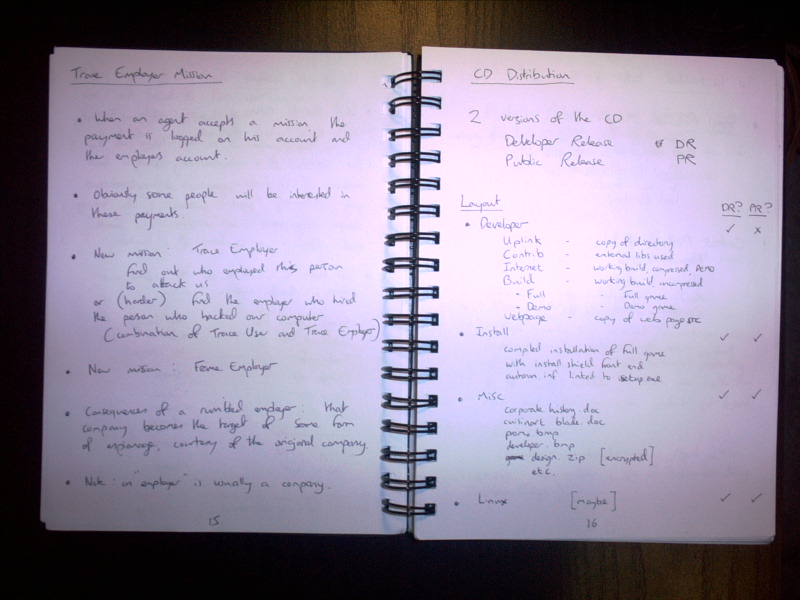 Trace Employer Mission
• When an agent accepts a mission, the
payment is logged on his account and
the employers account.
• Obviously some people will be interested in
these payments.
• New mission : Trace Employer
find out who employed this person
to attack us
or (harder) find the employer who hired
the person who hacked our computer
(combination of Trace User and Trace Employer)
• New mission : Frame Employer
• Consequences of a rumbled employer : that
company becomes the target of some form
of espionage, courtesy of the original company.
• Note : an "employer" is usually a company.
15
CD Distribution
2 versions of the CD
Developer Release DR
Public Release PR
Layout DR? PR?
• Developer ✓ x
Uplink - copy of directory
Contrib - external libs used
Internet - working build, compressed, DEMO
Build - working build, uncompressed
- Full - Full game
- Demo - Demo game
Webpage - copy of web page etc
• Install ✓ ✓
compiled installation of full game
with install shield front end
autorun.inf linked to setup.exe
• Misc ✓ ✓
corporate history.doc
cuttinart blade.doc
promo.bmp
developer.bmp
design.zip [encrypted]
etc.
• Linux [maybe] ✓ ✓
16